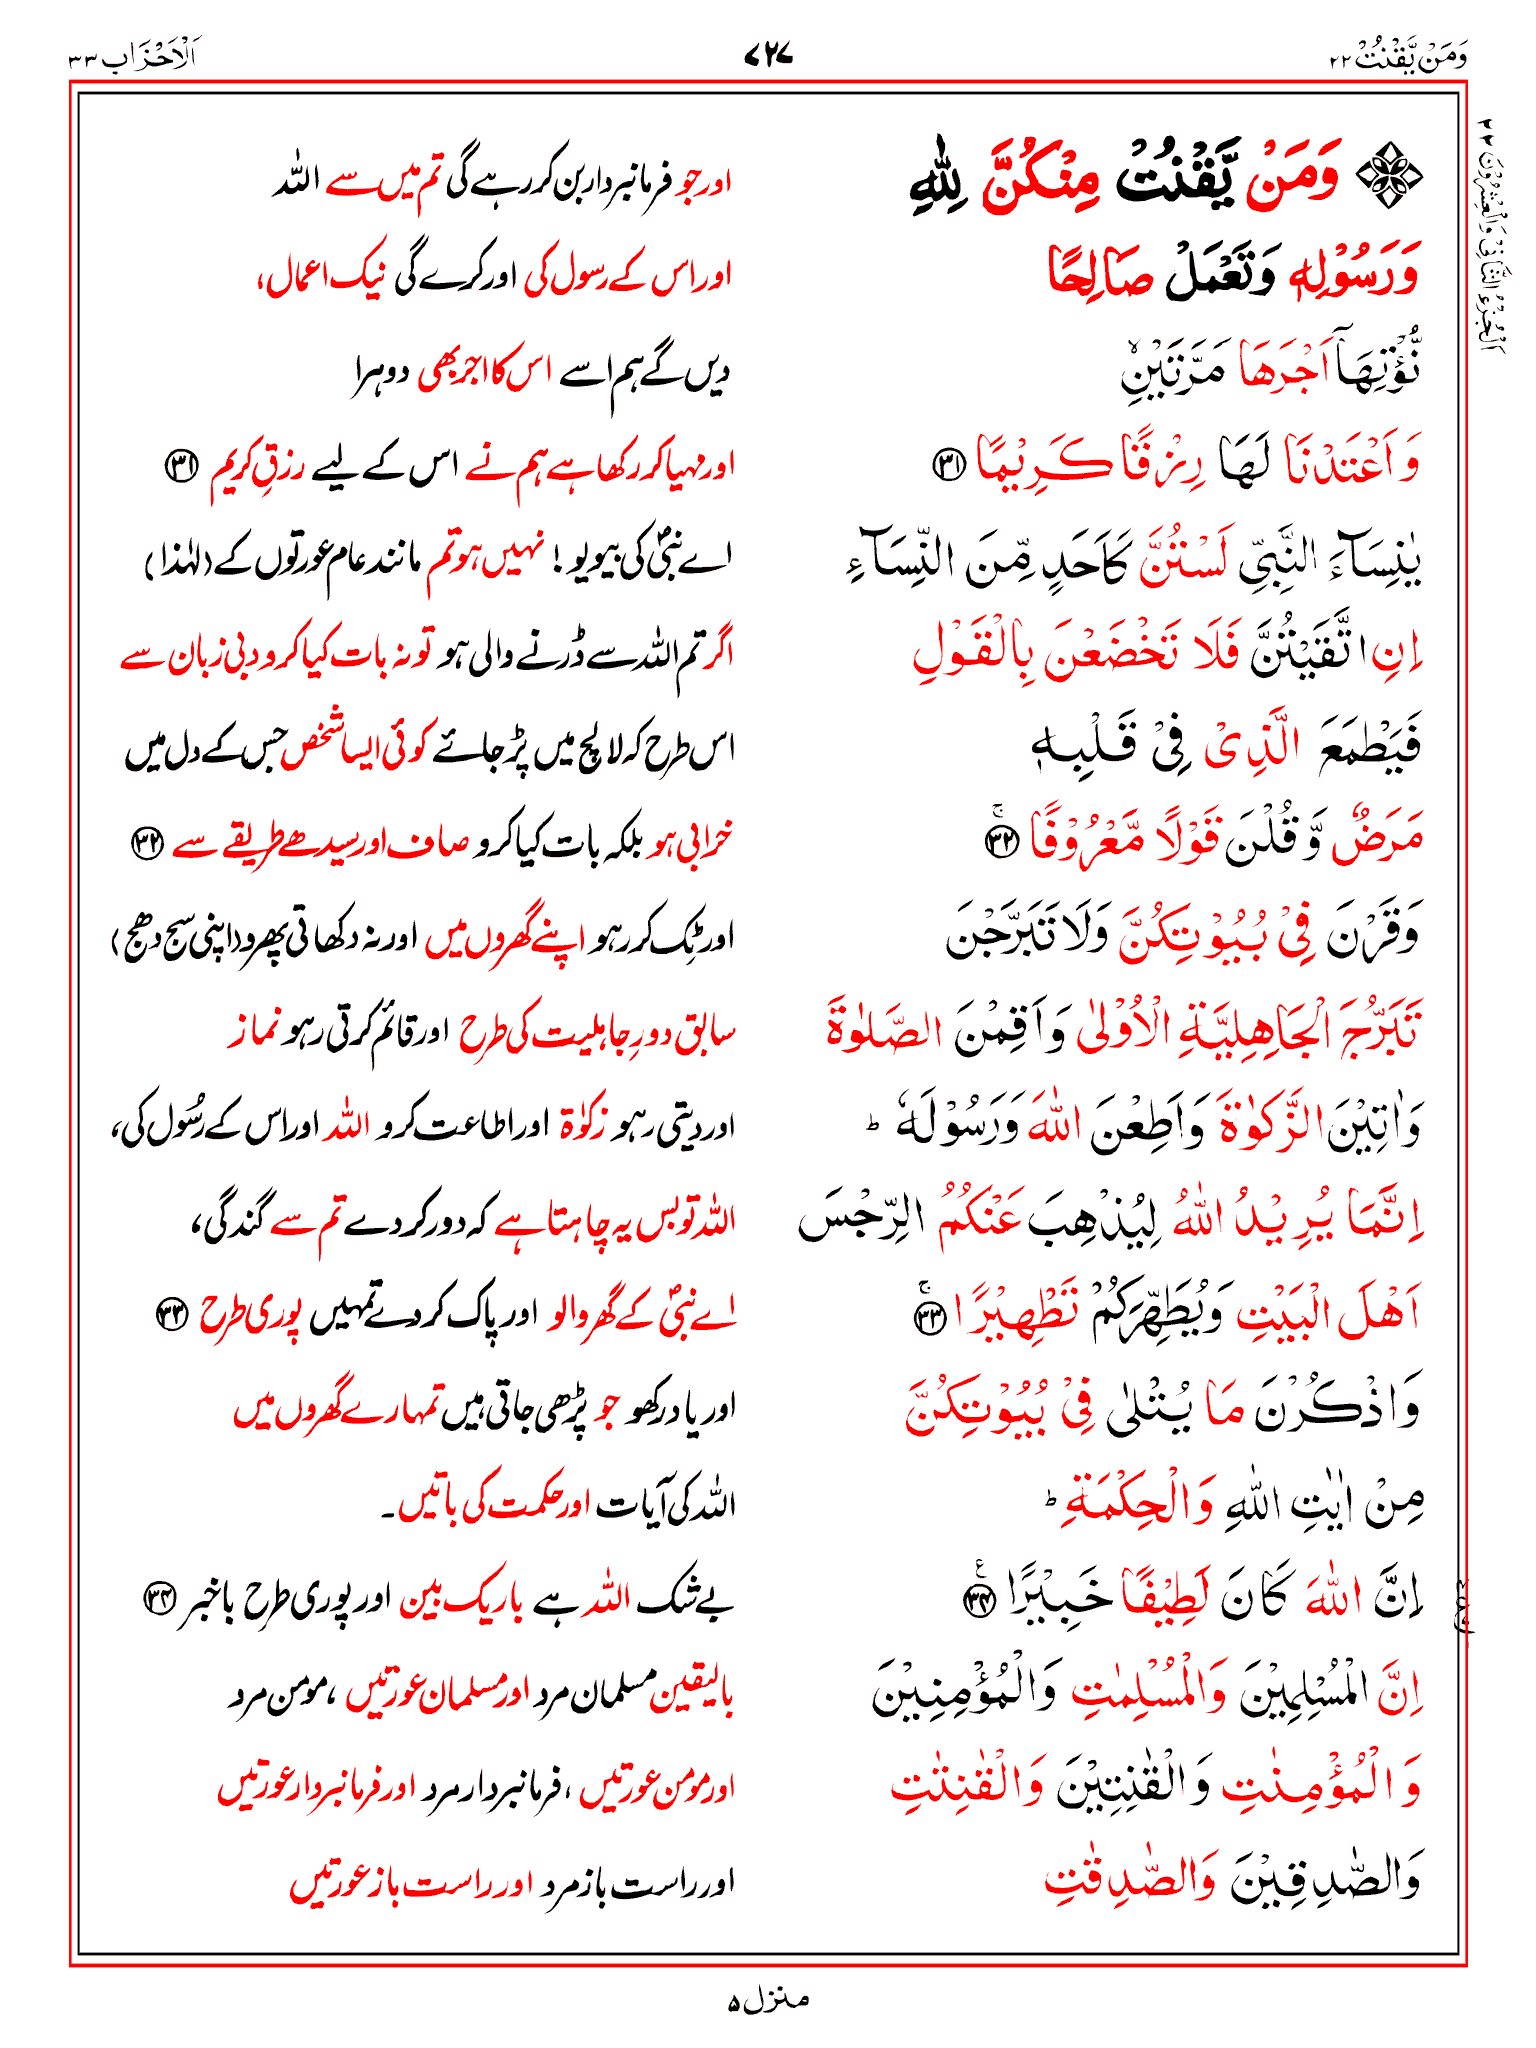 وَمَنْ يَّقْنُتْ ٢٢
٧٢٧
اَلْاَحْزَاب ٣٣
اَلْجُزْءُ الثَّانِیْ وَالْعِشْرُوْنَ ٢٢
وَمَنْ يَّقْنُتْ مِنْكُنَّ لِلّٰهِ
اور جو فرمانبردار بن کر رہے گی تم میں سے اللہ
وَرَسُوْلِهٖ وَتَعْمَلْ صَالِحًا
اور اس کے رسول کی اور کرے گی نیک اعمال،
نُّؤْتِهَآ اَجْرَهَا مَرَّتَيْنِ ۙ
دیں گے ہم اسے اس کا اجر بھی دوہرا
وَاَعْتَدْنَا لَهَا رِزْقًا كَرِيْمًا ﴿٣١﴾
اور مہیا کر رکھا ہے ہم نے اس کے لیے رزقِ کریم ﴿٣١﴾
يٰنِسَآءَ النَّبِيِّ لَسْتُنَّ كَاَحَدٍ مِّنَ النِّسَآءِ
اے نبیؐ کی بیویو! نہیں ہو تم مانند عام عورتوں کے (لہٰذا)
اِنِ اتَّقَيْتُنَّ فَلَا تَخْضَعْنَ بِالْقَوْلِ
اگر تم اللہ سے ڈرنے والی ہو تو نہ بات کیا کرو دبی زبان سے
فَيَطْمَعَ الَّذِيْ فِيْ قَلْبِهٖ
اس طرح کہ لالچ میں پڑ جائے کوئی ایسا شخص جس کے دل میں
مَرَضٌ وَّقُلْنَ قَوْلًا مَّعْرُوْفًا ۚ﴿٣٢﴾
خرابی ہو بلکہ بات کیا کرو صاف اور سیدھے طریقے سے ﴿٣٢﴾
وَقَرْنَ فِيْ بُيُوْتِكُنَّ وَلَا تَبَرَّجْنَ
اور ٹِک کر رہو اپنے گھروں میں اور نہ دکھاتی پھرو (اپنی سج دھج)
تَبَرُّجَ الْجَاهِلِيَّةِ الْاُوْلٰى وَاَقِمْنَ الصَّلٰوةَ
سابق دورِ جاہلیت کی طرح اور قائم کرتی رہو نماز
وَاٰتِيْنَ الزَّكٰوةَ وَاَطِعْنَ اللّٰهَ وَرَسُوْلَهٗ ؕ
اور دیتی رہو زکوٰۃ اور اطاعت کرو اللہ اور اس کے رسُول کی،
اِنَّمَا يُرِيْدُ اللّٰهُ لِيُذْهِبَ عَنْكُمُ الرِّجْسَ
اللہ تو بس یہ چاہتا ہے کہ دور کر دے تم سے گندگی،
اَهْلَ الْبَيْتِ وَيُطَهِّرَكُمْ تَطْهِيْرًا ۚ﴿٣٣﴾
اے نبیؐ کے گھر والو اور پاک کر دے تمہیں پوری طرح ﴿٣٣﴾
وَاذْكُرْنَ مَا يُتْلٰى فِيْ بُيُوْتِكُنَّ
اور یاد رکھو جو پڑھی جاتی ہیں تمہارے گھروں میں
مِنْ اٰيٰتِ اللّٰهِ وَالْحِكْمَةِ ؕ
اللہ کی آیات اور حکمت کی باتیں۔
اِنَّ اللّٰهَ كَانَ لَطِيْفًا خَبِيْرًا ﴿٣٤﴾ ع
بے شک اللہ ہے باریک بین اور پوری طرح باخبر ﴿٣٤﴾
اِنَّ الْمُسْلِمِيْنَ وَالْمُسْلِمٰتِ وَالْمُؤْمِنِيْنَ
بالیقین مسلمان مرد اور مسلمان عورتیں، مومن مرد
وَالْمُؤْمِنٰتِ وَالْقٰنِتِيْنَ وَالْقٰنِتٰتِ
اور مومن عورتیں، فرمانبردار مرد اور فرمانبردار عورتیں
وَالصّٰدِقِيْنَ وَالصّٰدِقٰتِ
اور راست باز مرد اور راست باز عورتیں
منزل ۵